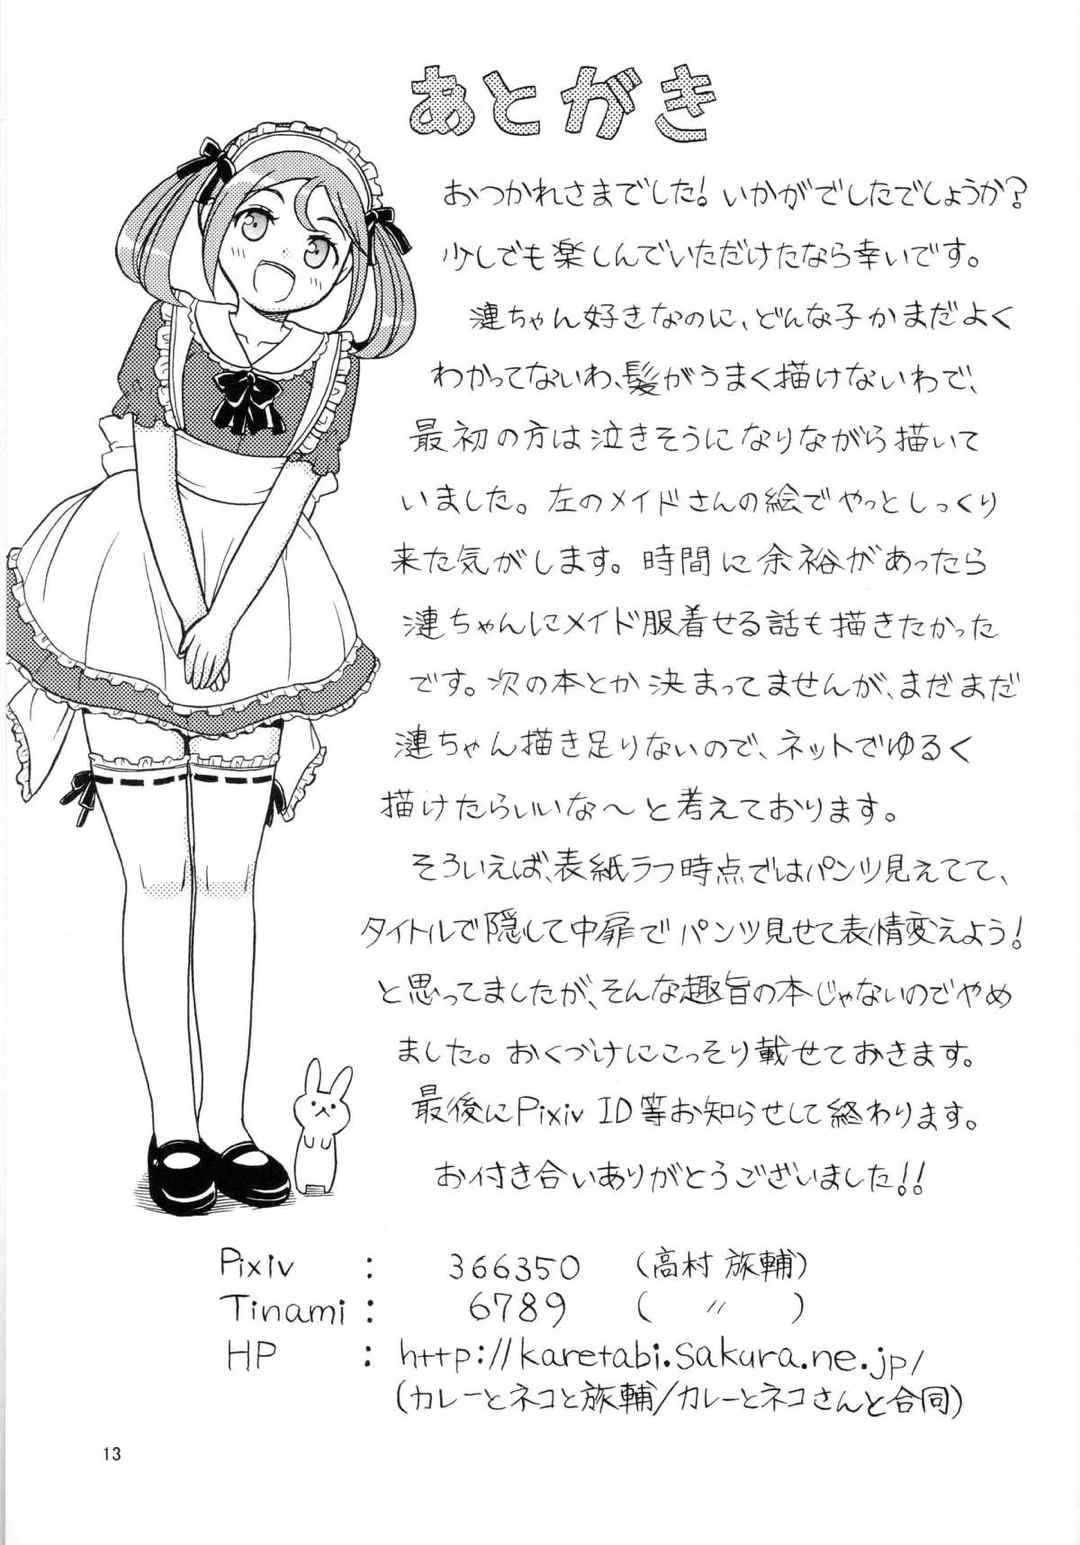 あとがき
おつかれさまでした！いかがでしたでしょうか？
少しでも楽しんでいただけたなら幸いです。
漣ちゃん好きなのに、どんな子かまだよく
わかってないわ、髪がうまく描けないわで、
最初の方は泣きそうになりながら描いて
いました。左のメイドさんの絵でやっとしっくり
来た気がします。時間に余裕があったら
漣ちゃんにメイド服着せる話も描きたかった
です。次の本とか決まってませんが、まだまだ
漣ちゃん描き足りないので、ネットでゆるく
描けたらいいな～と考えております。
そういえば、表紙ラフ時点ではパンツ見えてて、
タイトルで隠して中扉でパンツ見せて表情変えよう！
と思ってましたが、そんな趣旨の本じゃないのでやめ
ました。おくづけにこっそり載せておきます。
最後にPixiv ID等お知らせして終わります。
お付き合いありがとうございました!!
Pixiv : 366350 (高村 旅輔)
Tinami : 6789 ( 〃 )
HP : http://karetabi.sakura.ne.jp/
(カレーとネコと旅輔/カレーとネコさんと合同)
13